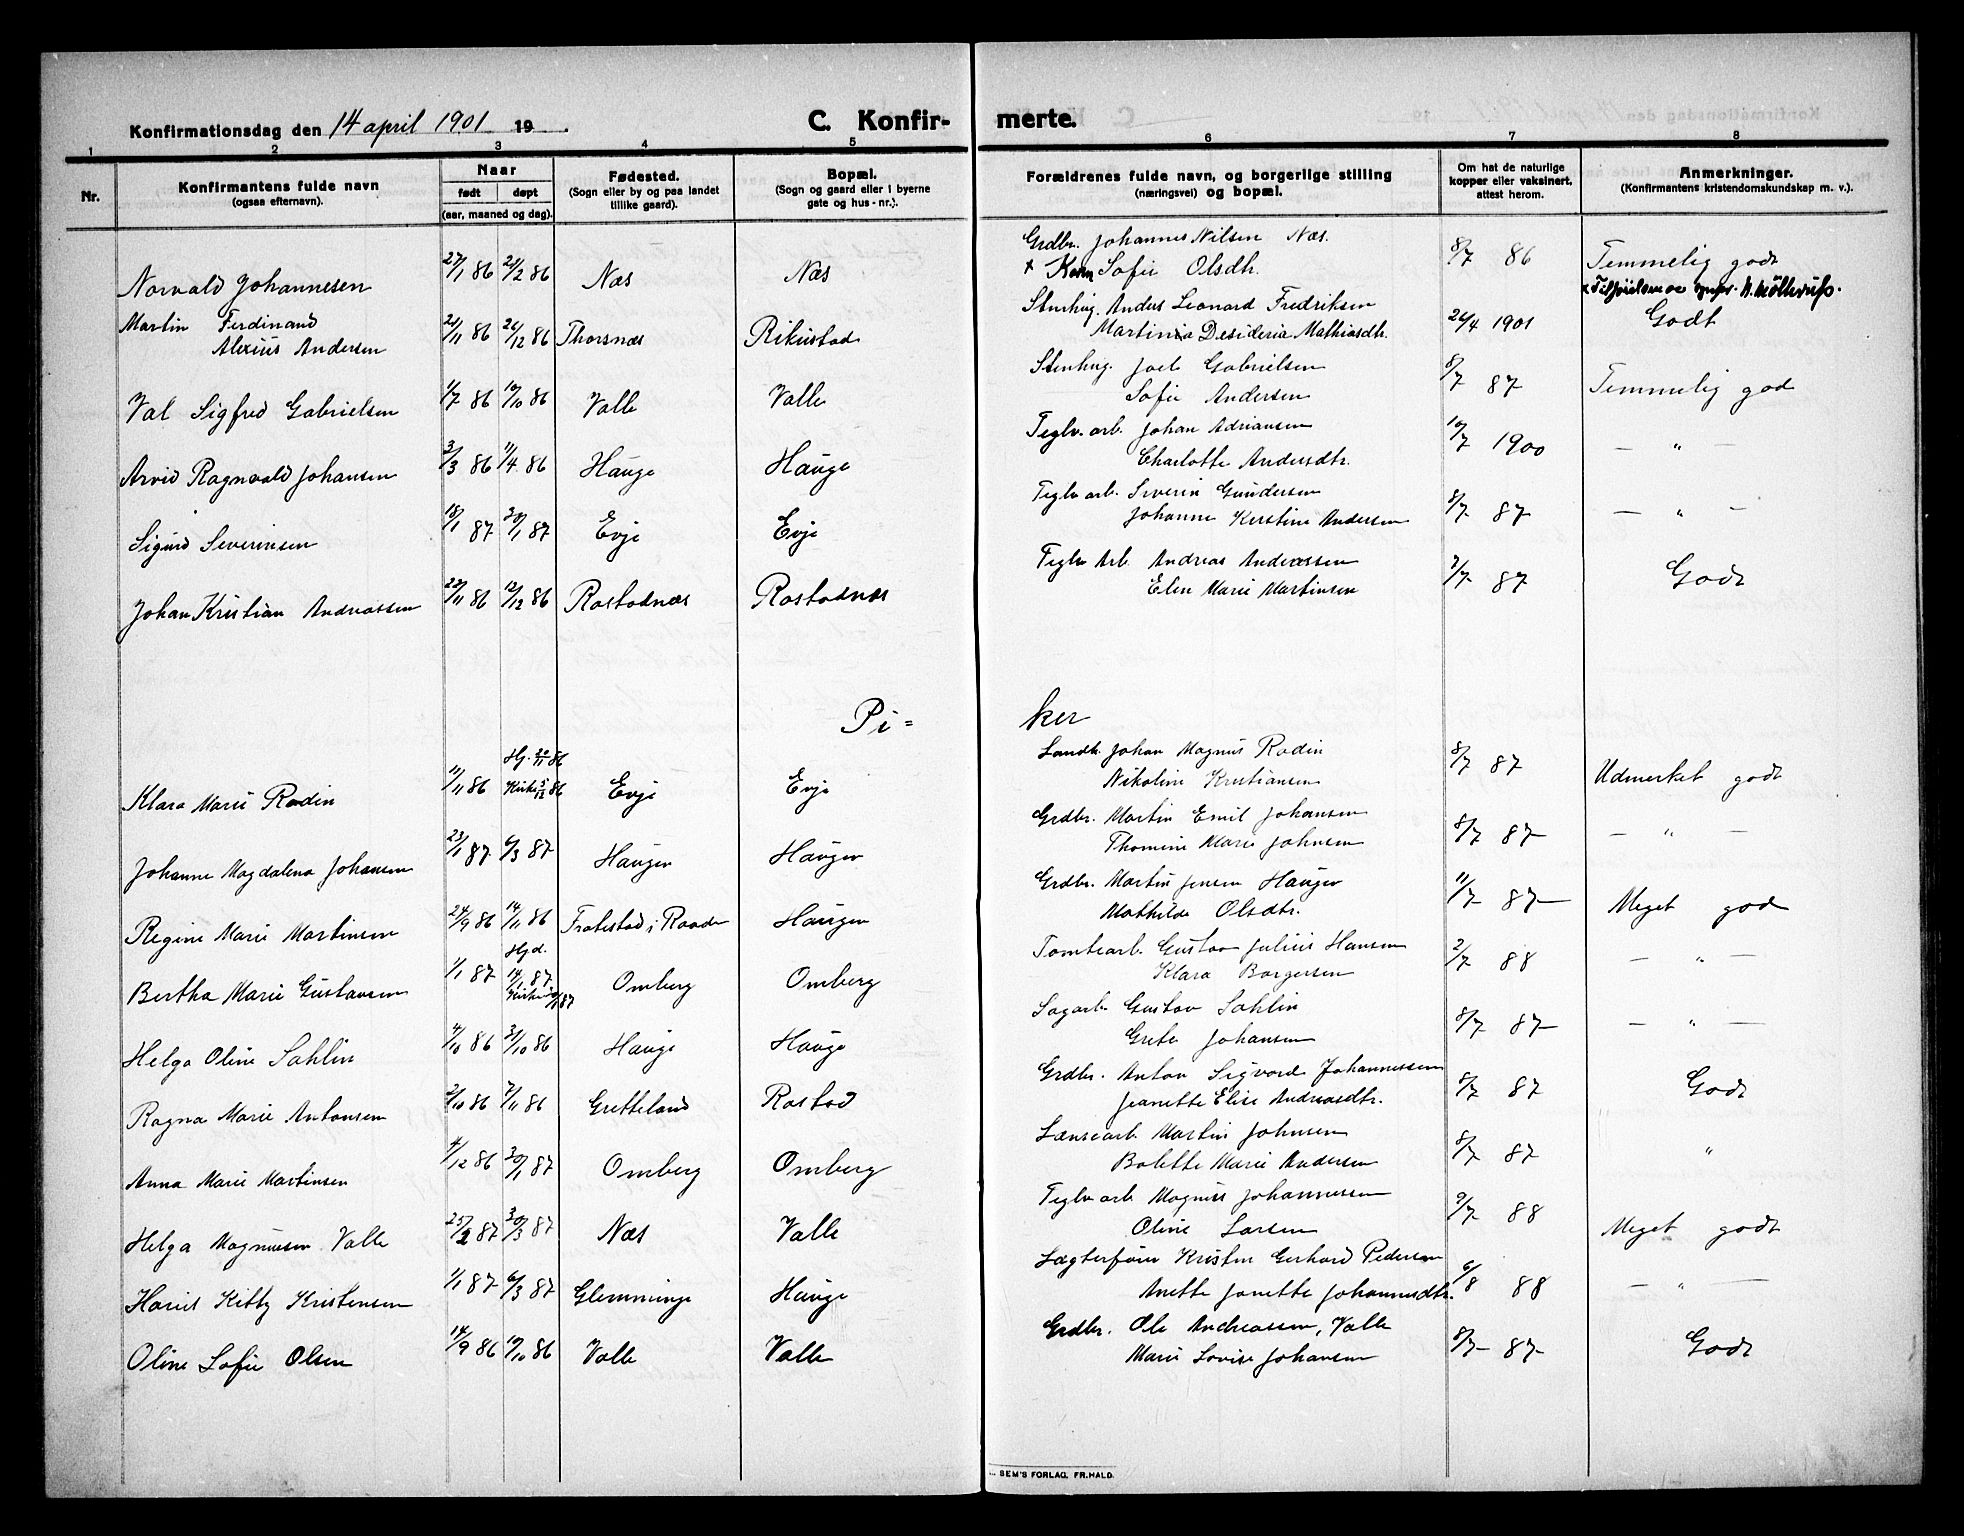 Konfirmationsdag den 14 april 1901 19
C. Konfir- merte.
1 2 3 4 5 6 7 8
Nr.
Konfirmantens fulde navn
(ogsaa efternavn).
Naar
født døpt
(aar, maaned og dag).
Fødested.
(Sogn eller by og paa landet
tillike gaard).
Bopæl.
(Sogn og gaard eller i byerne
gate og hus-nr.).
Forældrenes fulde navn, og borgerlige stilling
(næringsvei) og bopæl.
Om hat de naturlige
kopper eller vaksinert,
attest herom.
Anmerkninger.
(Konfirmantens kristendomskundskap m. v.).
Norvald Johannesen 27/1 86 21/2 86 Næs Næs
Grdbr. Johannes Nilsen Næs.
+ Kone Sofie Olsdtr. 8/7 86 Temmelig godt
Martin Ferdinand
Alexius Andersen 21/11 86 26/12 86 Thorsnæs Rikustad
Stenhug. Anders Leonard Fredriksen
Martinia Desideria Mathiasdtr. 26/4 1901 Godt
Val Sigfred Gabrielsen 1/7 86 10/10 86 Valle Valle
Stenhug. Joel Gabrielsen
Sofie Andersen 8/7 87 Temmelig god
Arvid Ragnvald Johansen 3/3 86 11/4 86 Hauge Hauge
Teglv. arb. Johan Adriansen
Charlotte Andersdtr. 10/7 1900 — " —
Sigurd Severinsen 18/1 87 30/1 87 Evje Evje
Teglv arb. Severin Gundersen
Johanne Kerstine Andersen 8/7 87 — " —
Johan Kristian Andreassen 22/11 86 12/12 86 Rostadnæs Rostadnæs
Teglv Arb. Andreas Andreassen
Elen Marie Martinsen 7/7 87 Godt
Pi= ker
Klara Marie Rodin 11/11 86 Hj. 20/11 86
Kirke 5/12 86 Evje Evje
Landh. Johan Magnus Rodin
Nikoline Kristiansen 8/7 87 Udmerket godt
Johanne Magdalena Johansen 23/1 87 6/3 87 Haugen Haugen
Grdbr. Martin Emil Johansen
Thomine Marie Johnsen 8/7 87 — " —
Regine Marie Martinsen 24/9 86 14/11 86 Fratestad i Raade Haugen
Grdbr. Martin Jensen Haugen
Mathilde Olsdtr. 11/7 87 Meget god
Bertha Marie Gustavsen 1/1 87 Hjd. 14/1 87
Omberg Omberg
Tomtearb. Gustav Julius Hansen
Klara Borgersen 2/7 88 — " —
Helga Oline Sahlin 4/10 86 31/10 86 Hauge Hauge
Sagarb. Gustav Sahlin
Grete Johansen 8/7 87 — " —
Ragna Marie Antonsen 2/10 86 7/11 86 Gretteland Rostad
Grdbr. Anton Sigvard Johannessen
Jeanette Elise Andreasdtr. 8/7 87 Godt
Anna Marie Martinsen 4/12 86 30/1 87 Omberg Omberg
Lænsearb. Martin Johnsen
Bolette Marie Andersen 8/7 87 "
Helga Magnusen Valle 25/2 87 30/3 87 Næs Valle
Teglv arb. Magnus Johannessen
Oline Larsen 9/7 88 Meget godt
Hariet Kitty Kristensen 1/1 87 6/3 87 Glemminge Hauge
Lægterfører Kristen Gerhard Pedersen
Anette Janette Johannesdtr. 6/8 88 — " —
Oline Sofie Olsen 14/9 86 10/10 86 Valle Valle
Grdbr. Ole Andreassen, Valle
Marie Lovise Johansen 8/7 87 Godt
SEM'S FORLAG, FR.HALD.